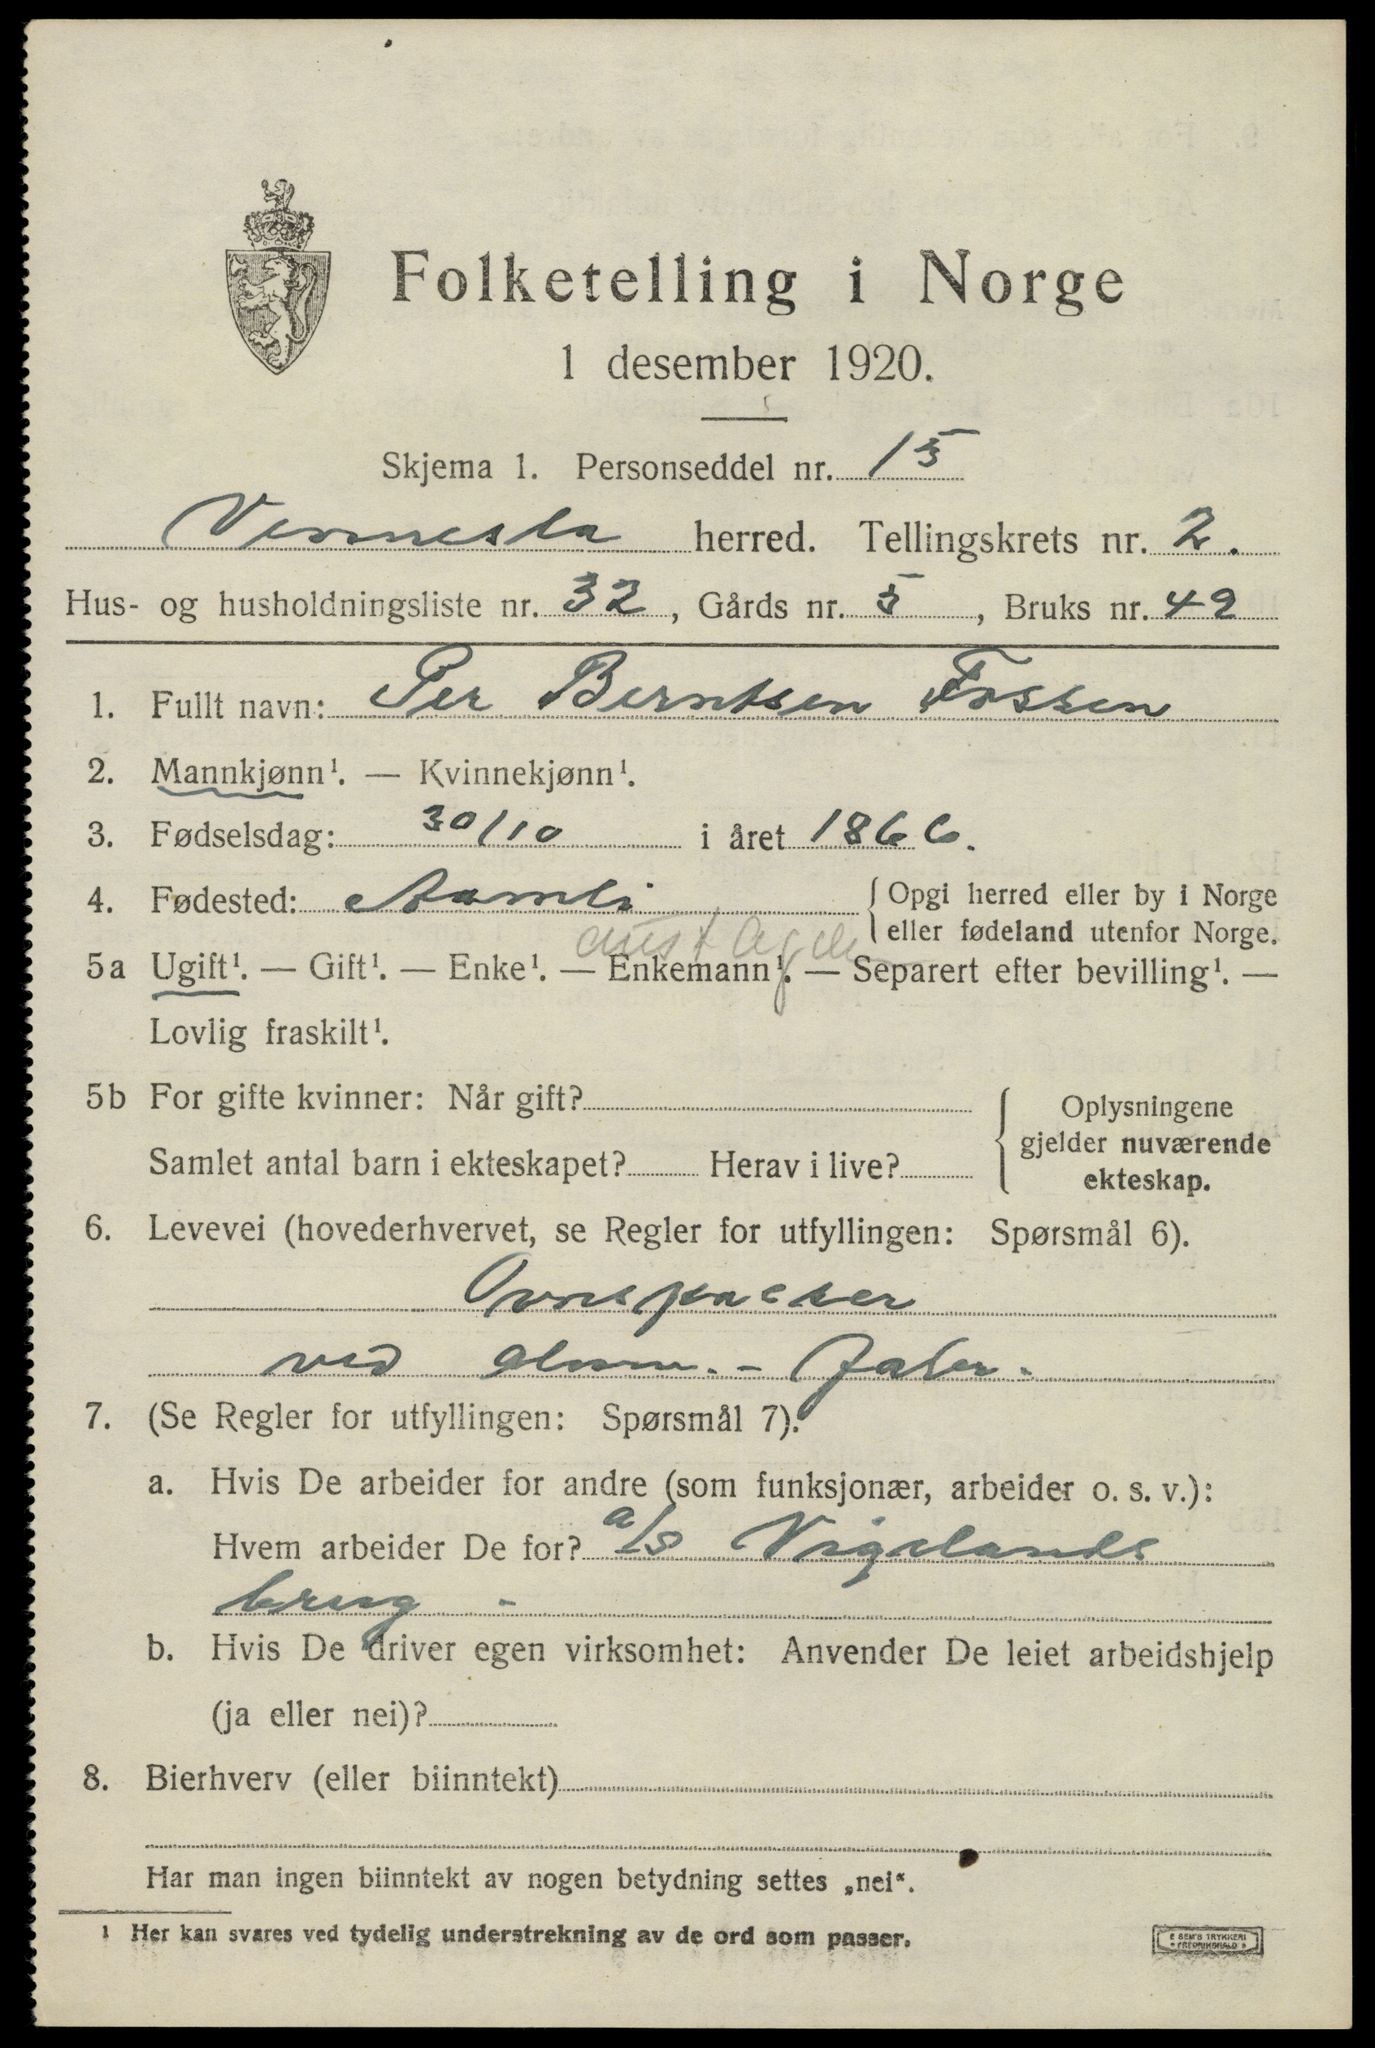 Folketelling i Norge
1 desember 1920.
Skjema 1. Personseddel nr. 15
Vennesla herred. Tellingskrets nr. 2.
Hus- og husholdningsliste nr. 32, Gårds nr. 5, Bruks nr. 49
1. Fullt navn: Per Berntsen Fossen
2. Mannkjønn¹. — Kvinnekjønn¹.
3. Fødselsdag: 30/10 i året 1866.
4. Fødested: Aamli { Opgi herred eller by i Norge
aust Agder eller fødeland utenfor Norge.
5a Ugift¹. — Gift¹. — Enke¹. — Enkemann¹. — Separert efter bevilling¹. —
Lovlig fraskilt¹.
5b For gifte kvinner: Når gift? { Oplysningene
gjelder nuværende
Samlet antal barn i ekteskapet? Herav i live? ekteskap.
6. Levevei (hovederhvervet, se Regler for utfyllingen: Spørsmål 6).
Ovnspasser
ved alum. - fabr.
7. (Se Regler for utfyllingen: Spørsmål 7).
a. Hvis De arbeider for andre (som funksjonær, arbeider o. s. v.):
Hvem arbeider De for? a/s Vigelands
brug -
b. Hvis De driver egen virksomhet: Anvender De leiet arbeidshjelp
(ja eller nei)?
8. Bierhverv (eller biinntekt)
Har man ingen biinntekt av nogen betydning settes „nei“.
1 Her kan svares ved tydelig understrekning av de ord som passer.
E SEM'S TRYKKERI
FREDRIKSHALD